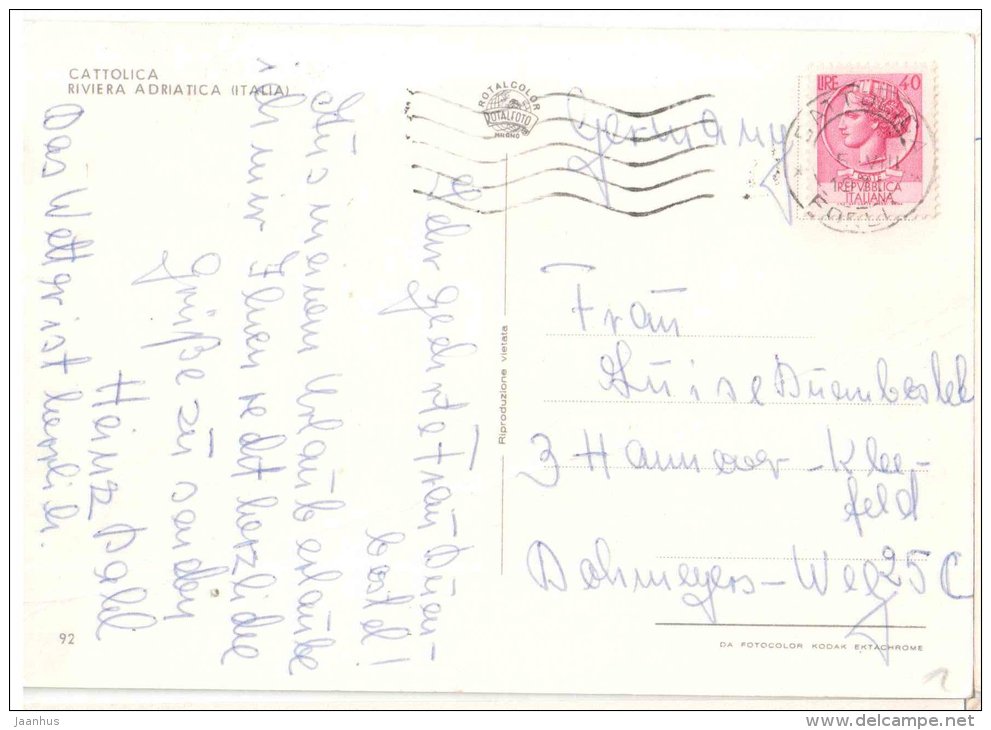 CATTOLICA
RIVIERA ADRIATICA (ITALIA)
ROTALCOLOR
ROTALFOTO
MILANO
LIRE 40
REPVBBLICA
ITALIANA
Germany
Sehr geehrte Frau Duen-
bostel!
Aus meinem Urlaub erlaube
ich mir Ihnen recht herzliche
Grüße zu senden
Heinz Dahl
Das Wetter ist herrlich.
Riproduzione vietata
Frau
Luise Duenbostel
3 Hannover-Klee-
feld
Dohmeyers-Weg 25 C
92
DA FOTOCOLOR KODAK EKTACHROME
1
Jaanhus
www.delcampe.net